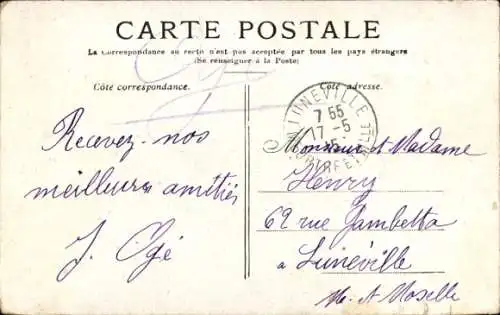 CARTE POSTALE
La Correspondance au recto n'est pas acceptée par tous les pays étrangers
(Se renseigner à la Poste)
Côté correspondance.
Côté adresse.
LUNEVILLE
7 55
17 - 5
Recevez nos
meilleures amitiés
J. Ogé
Monsieur et Madame
Henry
62 rue Gambetta
a Lunéville
M. et Moselle